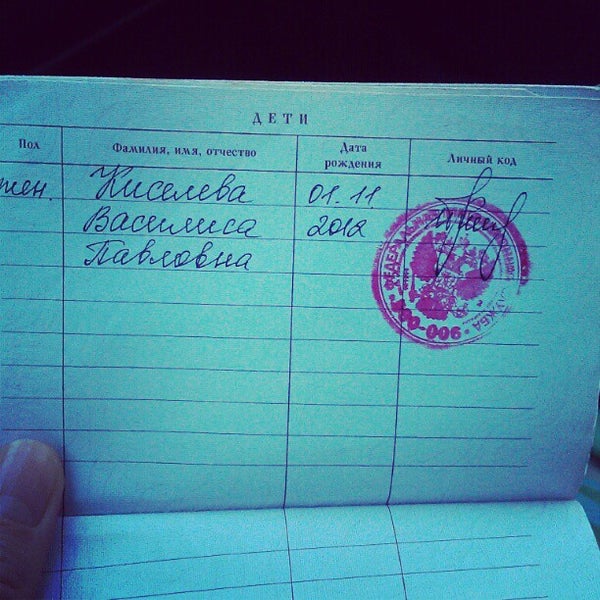 ДЕТИ
Пол Фамилия, имя, отчество Дата рождения Личный код
жен. Киселева 01.11
Василиса 2012
Павловна
ФЕДЕРАЛЬНАЯ СЛУЖБА
006